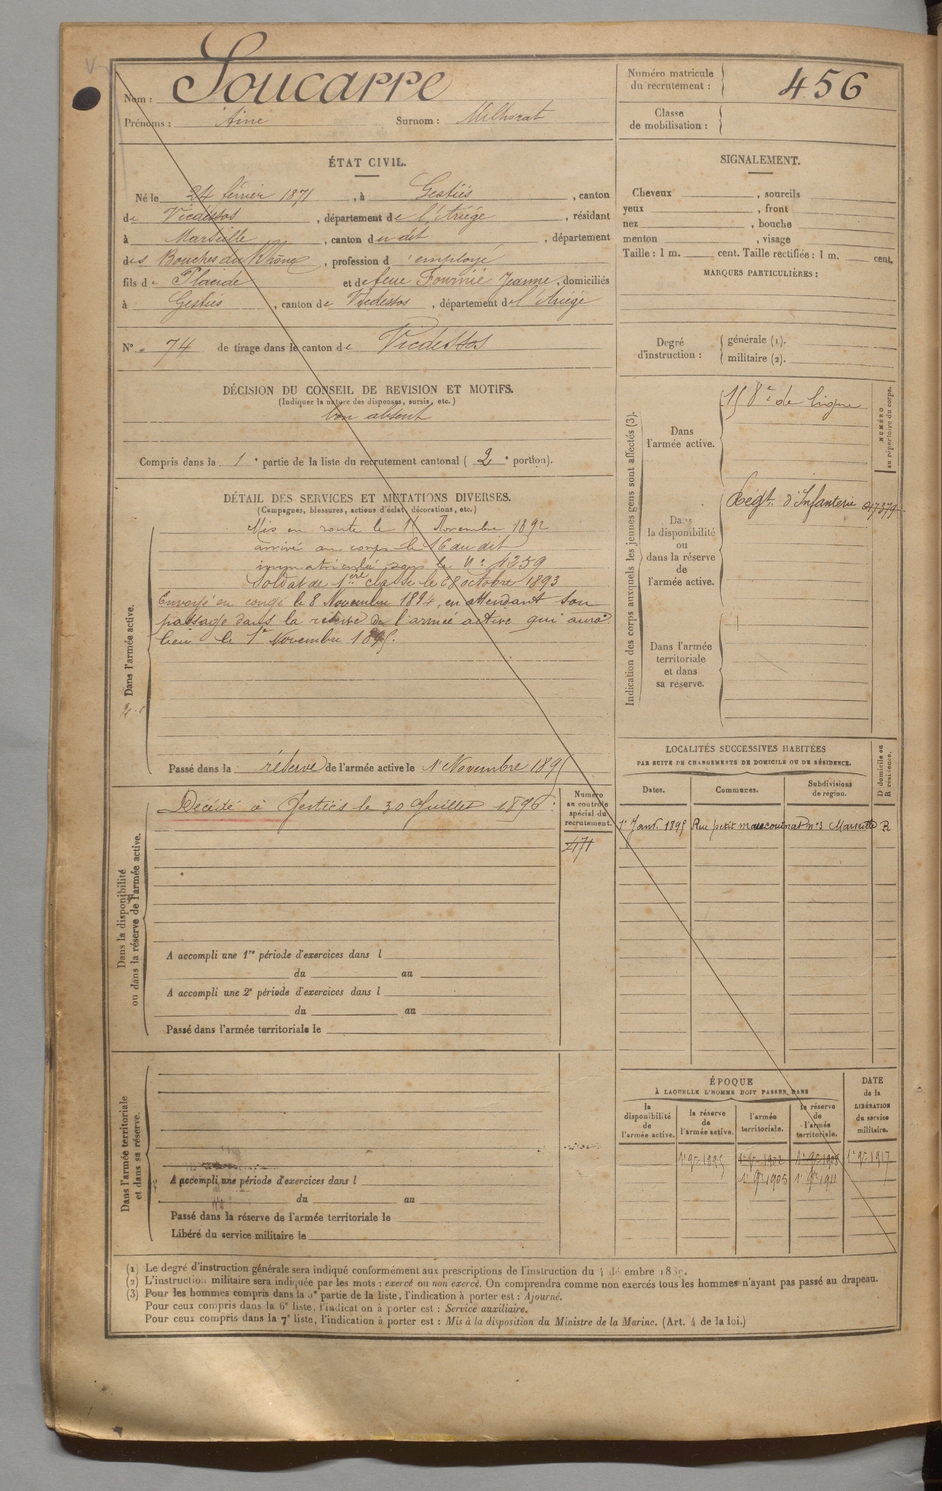 Nom : Soucarre
Prénoms : Aimé Surnom : Milhorat
Numéro matricule du recrutement : 456
Classe de mobilisation :
ÉTAT CIVIL.
Né le 24 février 1871, à Gestiès, canton
de Vicdessos, département de l'Ariège, résidant
à Marseille, canton du dit, département
des Bouches du Rhône, profession d'employé
fils de Placide et de feue Fournié Jeanne, domiciliés
à Gestiès, canton de Vicdessos, département de l'Ariège
N° 74 de tirage dans le canton de Vicdessos
SIGNALEMENT.
Cheveux , sourcils
yeux , front
nez , bouche
menton , visage
Taille : 1 m. cent. Taille rectifiée : 1 m. cent.
MARQUES PARTICULIÈRES :
Degré d'instruction : générale (1). militaire (2).
DÉCISION DU CONSEIL DE REVISION ET MOTIFS.
(Indiquer la nature des dispenses, sursis, etc.)
bon absent
Compris dans la 1e partie de la liste du recrutement cantonal ( 2e portion).
DÉTAIL DES SERVICES ET MUTATIONS DIVERSES.
(Campagnes, blessures, actions d'éclat, décorations, etc.)
Dans l'armée active.
Mis en route le Novembre 1892
arrivé au corps le 16 du dit
immatriculé sous le N° 4259
Soldat de 1ère classe le octobre 1893
Envoyé en congé le 8 Novembre 1894, en attendant son
passage dans la réserve de l'armée active qui aura
lieu le 1er Novembre 1895.
Passé dans la réserve de l'armée active le 1er Novembre 1895
Indication des corps auxquels les jeunes gens sont affectés (3).
NUMÉRO au répertoire du corps.
Dans l'armée active.
158e de ligne
Dans la disponibilité ou dans la réserve de l'armée active.
Régt. d'Infanterie
Dans l'armée territoriale et dans sa réserve.
Dans la disponibilité ou dans la réserve de l'armée active.
Décédé à Gestiès le 30 Juillet 1896.
Numéro au contrôle spécial du recrutement.
471
A accompli une 1re période d'exercices dans l
du au
A accompli une 2e période d'exercices dans l
du au
Passé dans l'armée territoriale le
LOCALITÉS SUCCESSIVES HABITÉES
PAR SUITE DE CHANGEMENTS DE DOMICILE OU DE RÉSIDENCE.
Dates. Communes. Subdivisions de région. D domicile ou R résidence.
1er Janv. 1895 Rue petit n° 3 Marseille R
Dans l'armée territoriale et dans sa réserve.
A accompli une période d'exercices dans l
du au
Passé dans la réserve de l'armée territoriale le
Libéré du service militaire le
ÉPOQUE
À LAQUELLE L'HOMME DOIT PASSER DANS
la disponibilité de l'armée active. la réserve de l'armée active. l'armée territoriale. la réserve de l'armée territoriale. DATE de la LIBÉRATION du service militaire.
1er 9bre 1895 1er 9bre 1902 1er 9bre 1908 1er 9bre 1917
1er 9bre 1905 1er 9bre 1911
(1) Le degré d'instruction générale sera indiqué conformément aux prescriptions de l'instruction du
(2) L'instruction militaire sera indiquée par les mots : exercé ou non exercé. On comprendra comme non exercés tous les hommes n'ayant pas passé au drapeau.
(3) Pour les hommes compris dans la 5e partie de la liste, l'indication à porter est : Ajourné.
Pour ceux compris dans la 6e liste, l'indication à porter est : Service auxiliaire.
Pour ceux compris dans la 7e liste, l'indication à porter est : Mis à la disposition du Ministre de la Marine. (Art. 4 de la loi.)